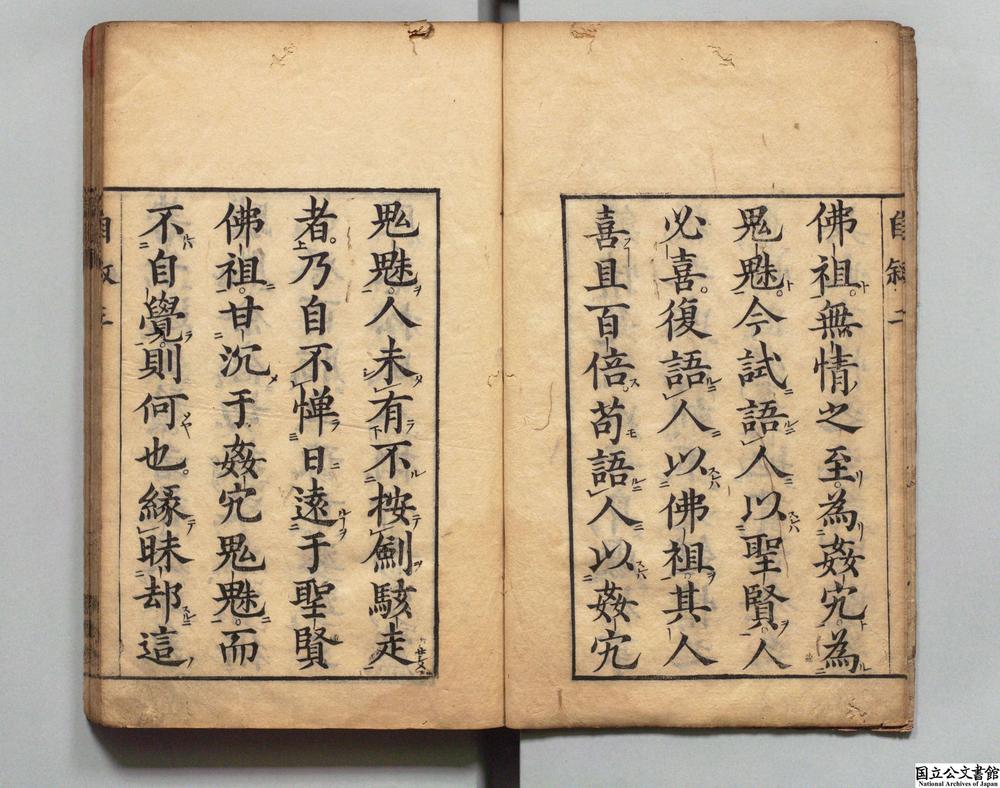 佛祖。無情之至。為姦宄為
鬼魅。今試語人以聖賢。人
必喜。復語人以佛祖。其人
喜且百倍。苟語人以姦宄
鬼魅。人未有不按劍駭走
者。乃自不憚日遠于聖賢
佛祖。甘沉于姦宄鬼魅。而
不自覺。則何也。緣昧却這
国立公文書館
National Archives of Japan